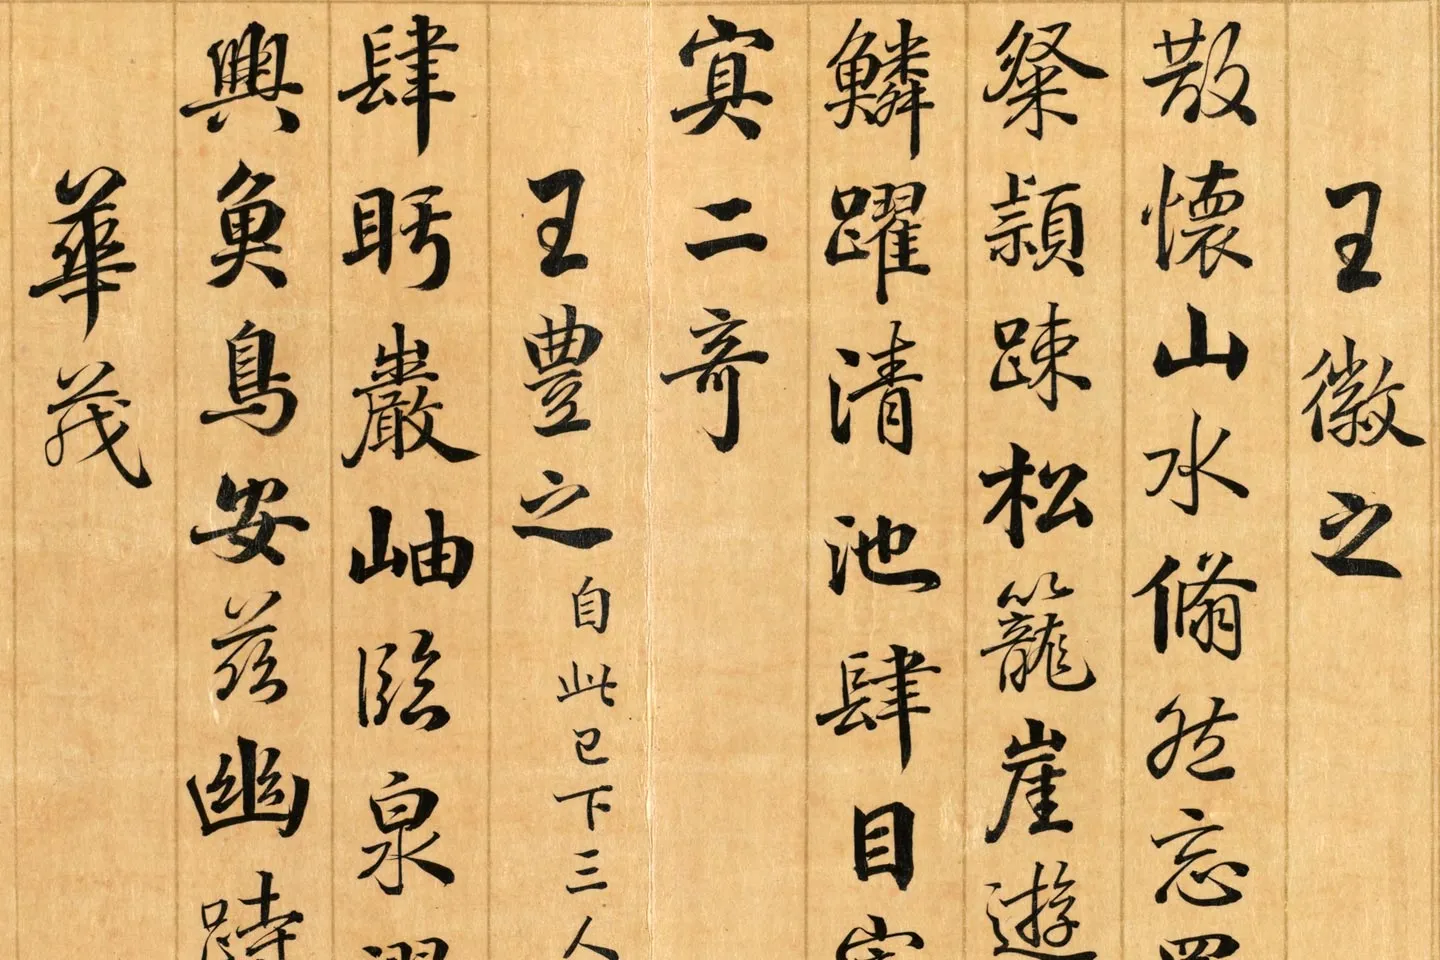 王徽之
散懷山水翛然忘羈
粲潁踈松籠崖遊
鱗躍清池肆目寄
寘二奇
王豊之 自此已下三人
肆眄巖岫臨泉濯
興魚鳥安茲幽跱
華茂